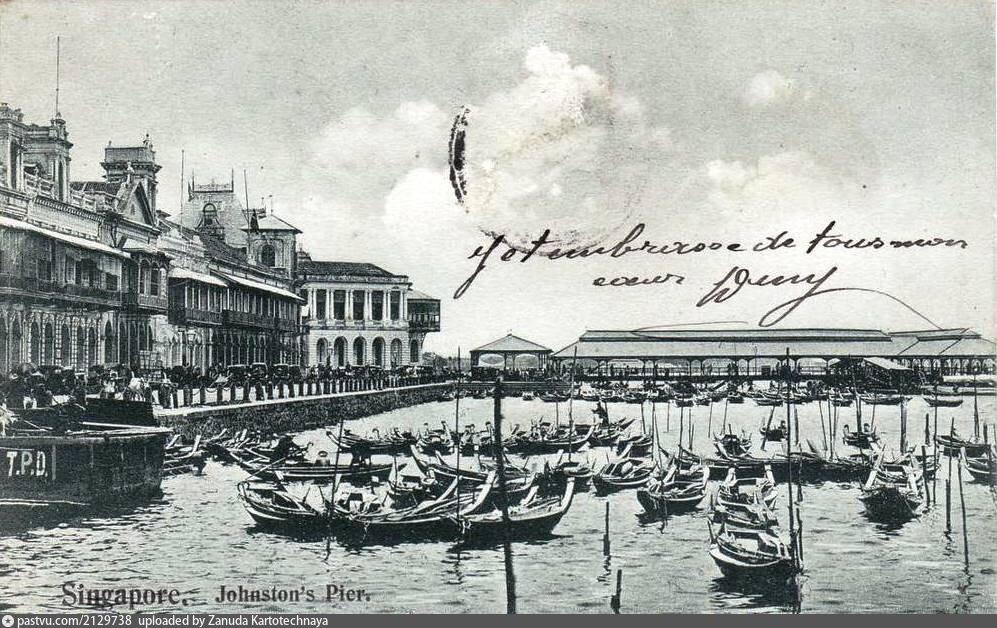 de tous mon
coeur
T.P.D.
Singapore. Johnston's Pier.
pastvu.com/2129738 uploaded by Zanuda Kartotechnaya